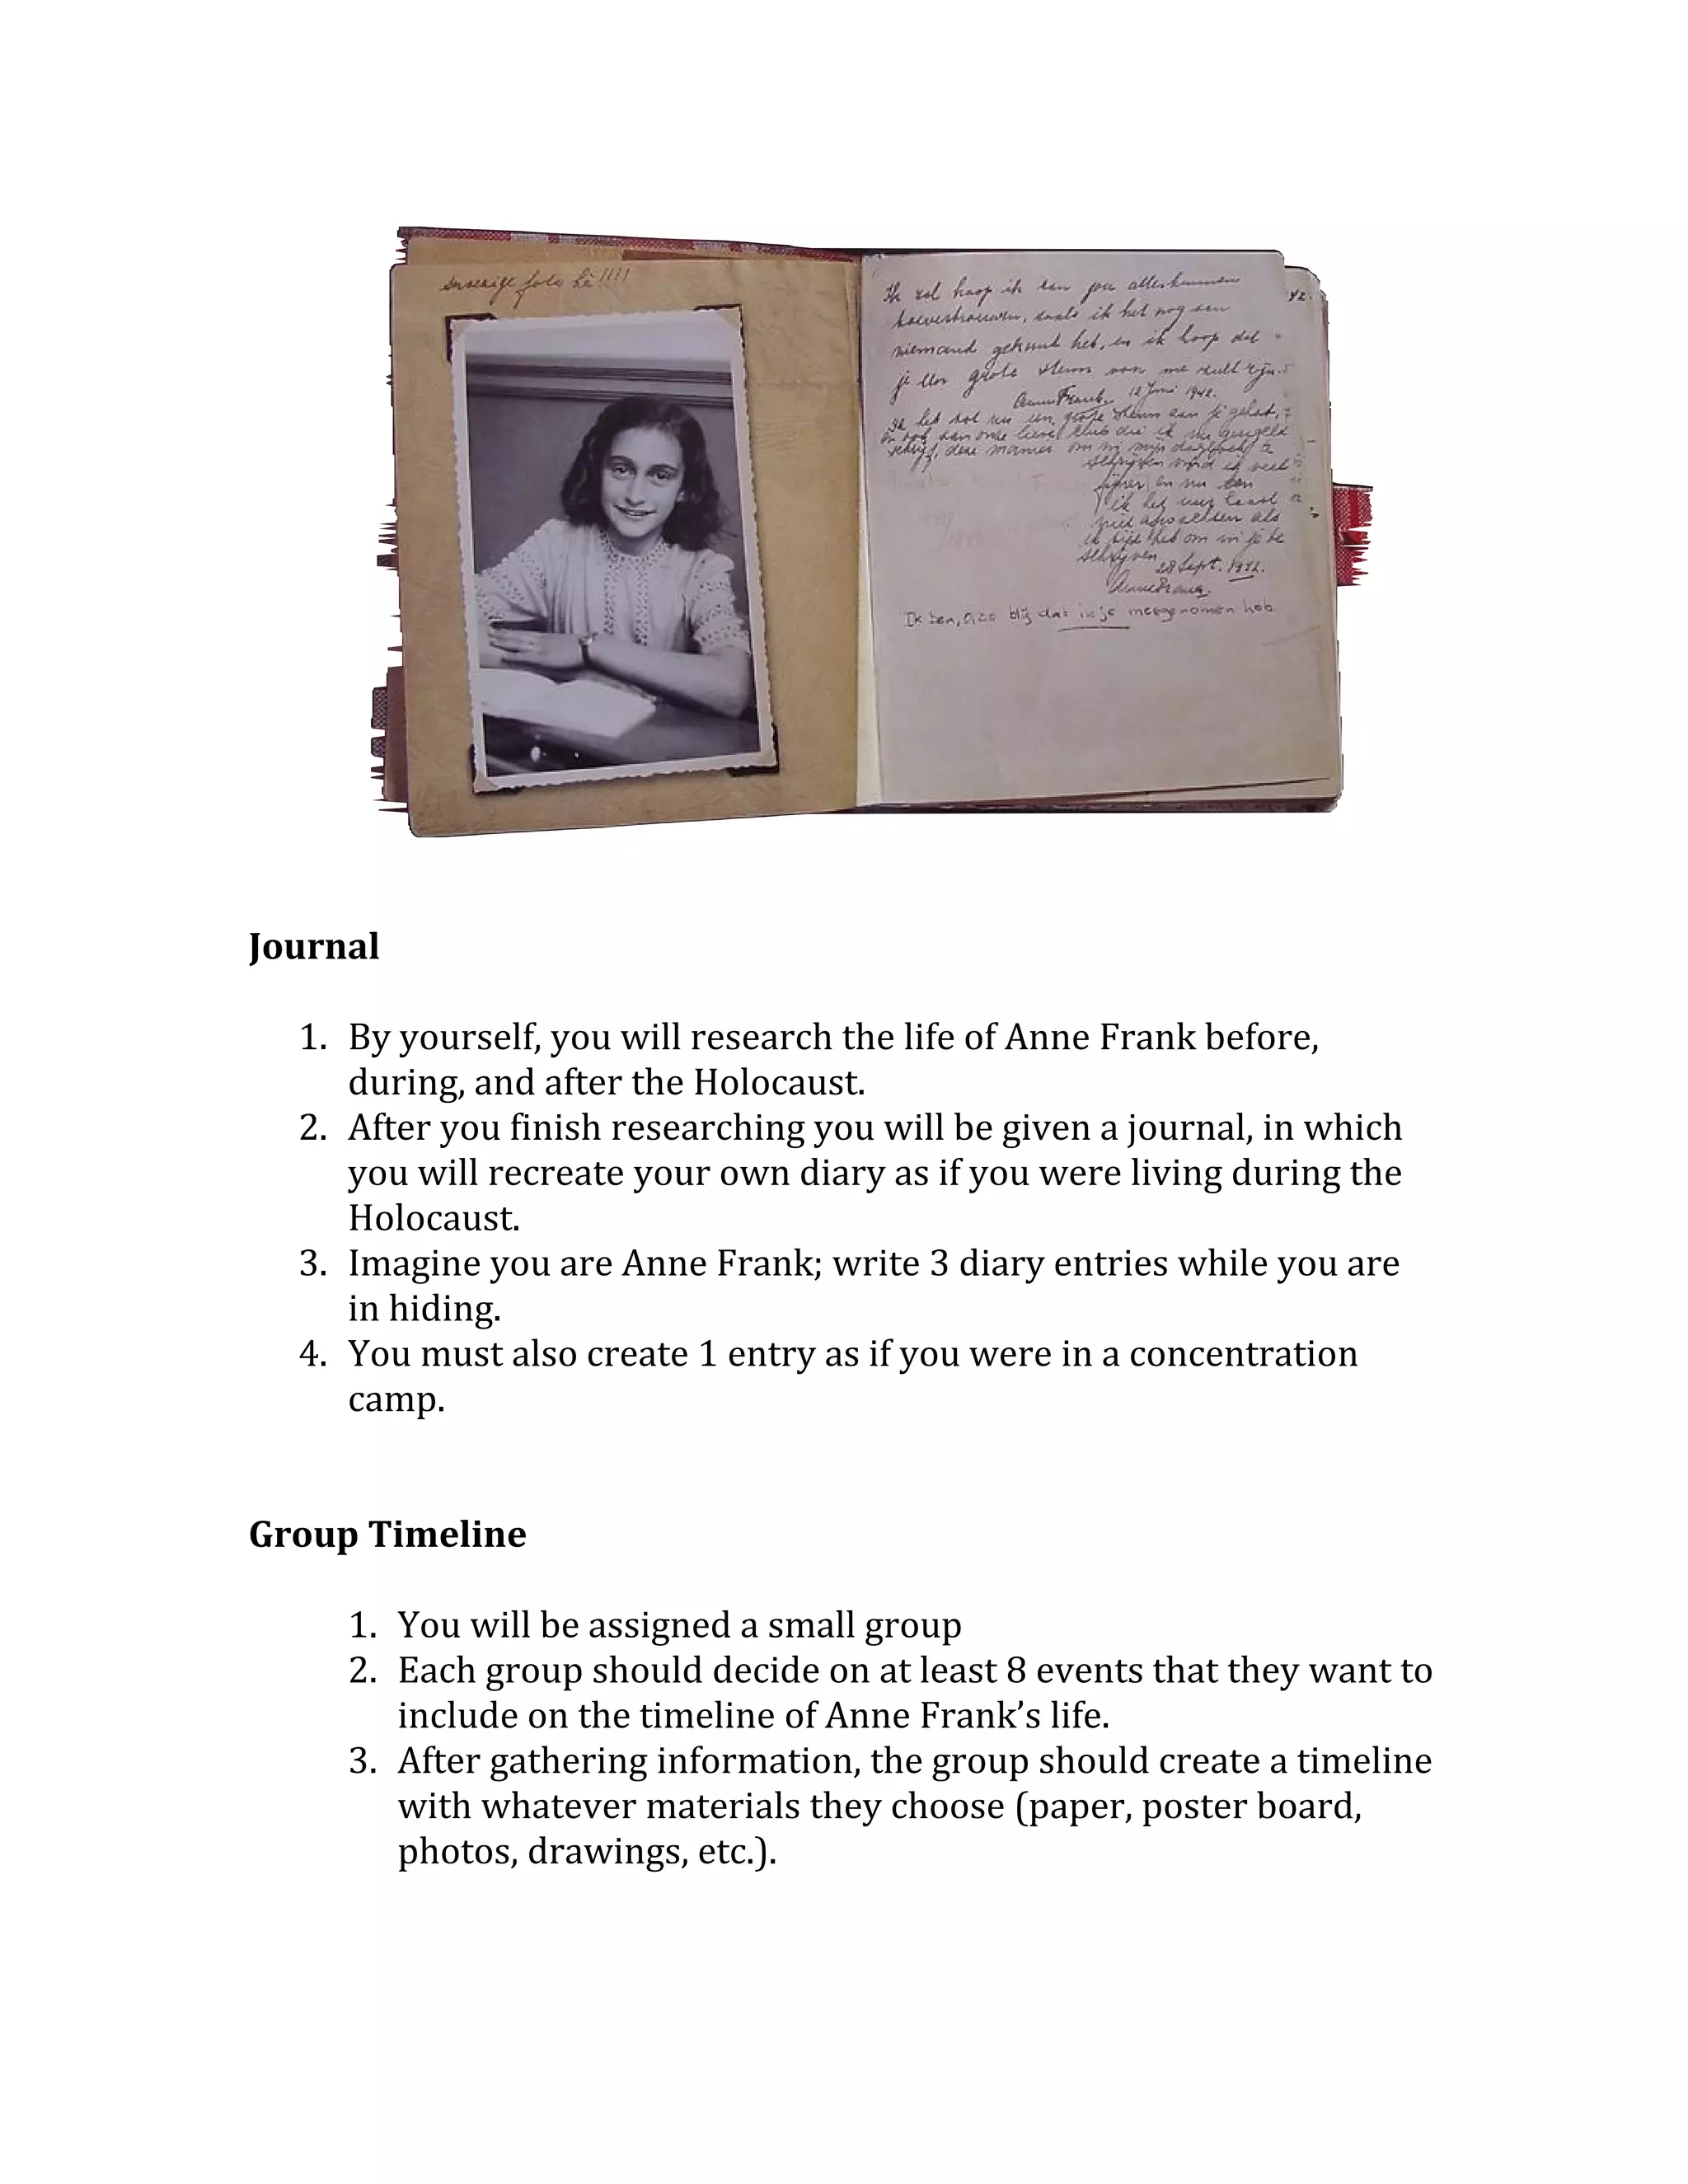 snoezige foto hè!!!!
Ik zal hoop ik aan jou alles kunnen
toevertrouwen, zoals ik het nog aan
niemand gekund heb, en ik hoop dat
je een grote steun voor me zult zijn.
Anne Frank. 12 Juni 1942.
Ik heb tot nu een grote steun aan je gehad,
en ook aan onze lieve club die ik nu geregeld
schrijf, deze manier om in mijn dagboek te
schrijven vind ik veel
fijner en nu kan
ik het uur haast
niet afwachten als
ik tijd heb om in je te
schrijven
28 Sept. 1942.
Anne Frank.
Ik ben, o, zo blij dat ik je meegenomen heb
42.
Journal
1. By yourself, you will research the life of Anne Frank before,
during, and after the Holocaust.
2. After you finish researching you will be given a journal, in which
you will recreate your own diary as if you were living during the
Holocaust.
3. Imagine you are Anne Frank; write 3 diary entries while you are
in hiding.
4. You must also create 1 entry as if you were in a concentration
camp.
Group Timeline
1. You will be assigned a small group
2. Each group should decide on at least 8 events that they want to
include on the timeline of Anne Frank’s life.
3. After gathering information, the group should create a timeline
with whatever materials they choose (paper, poster board,
photos, drawings, etc.).